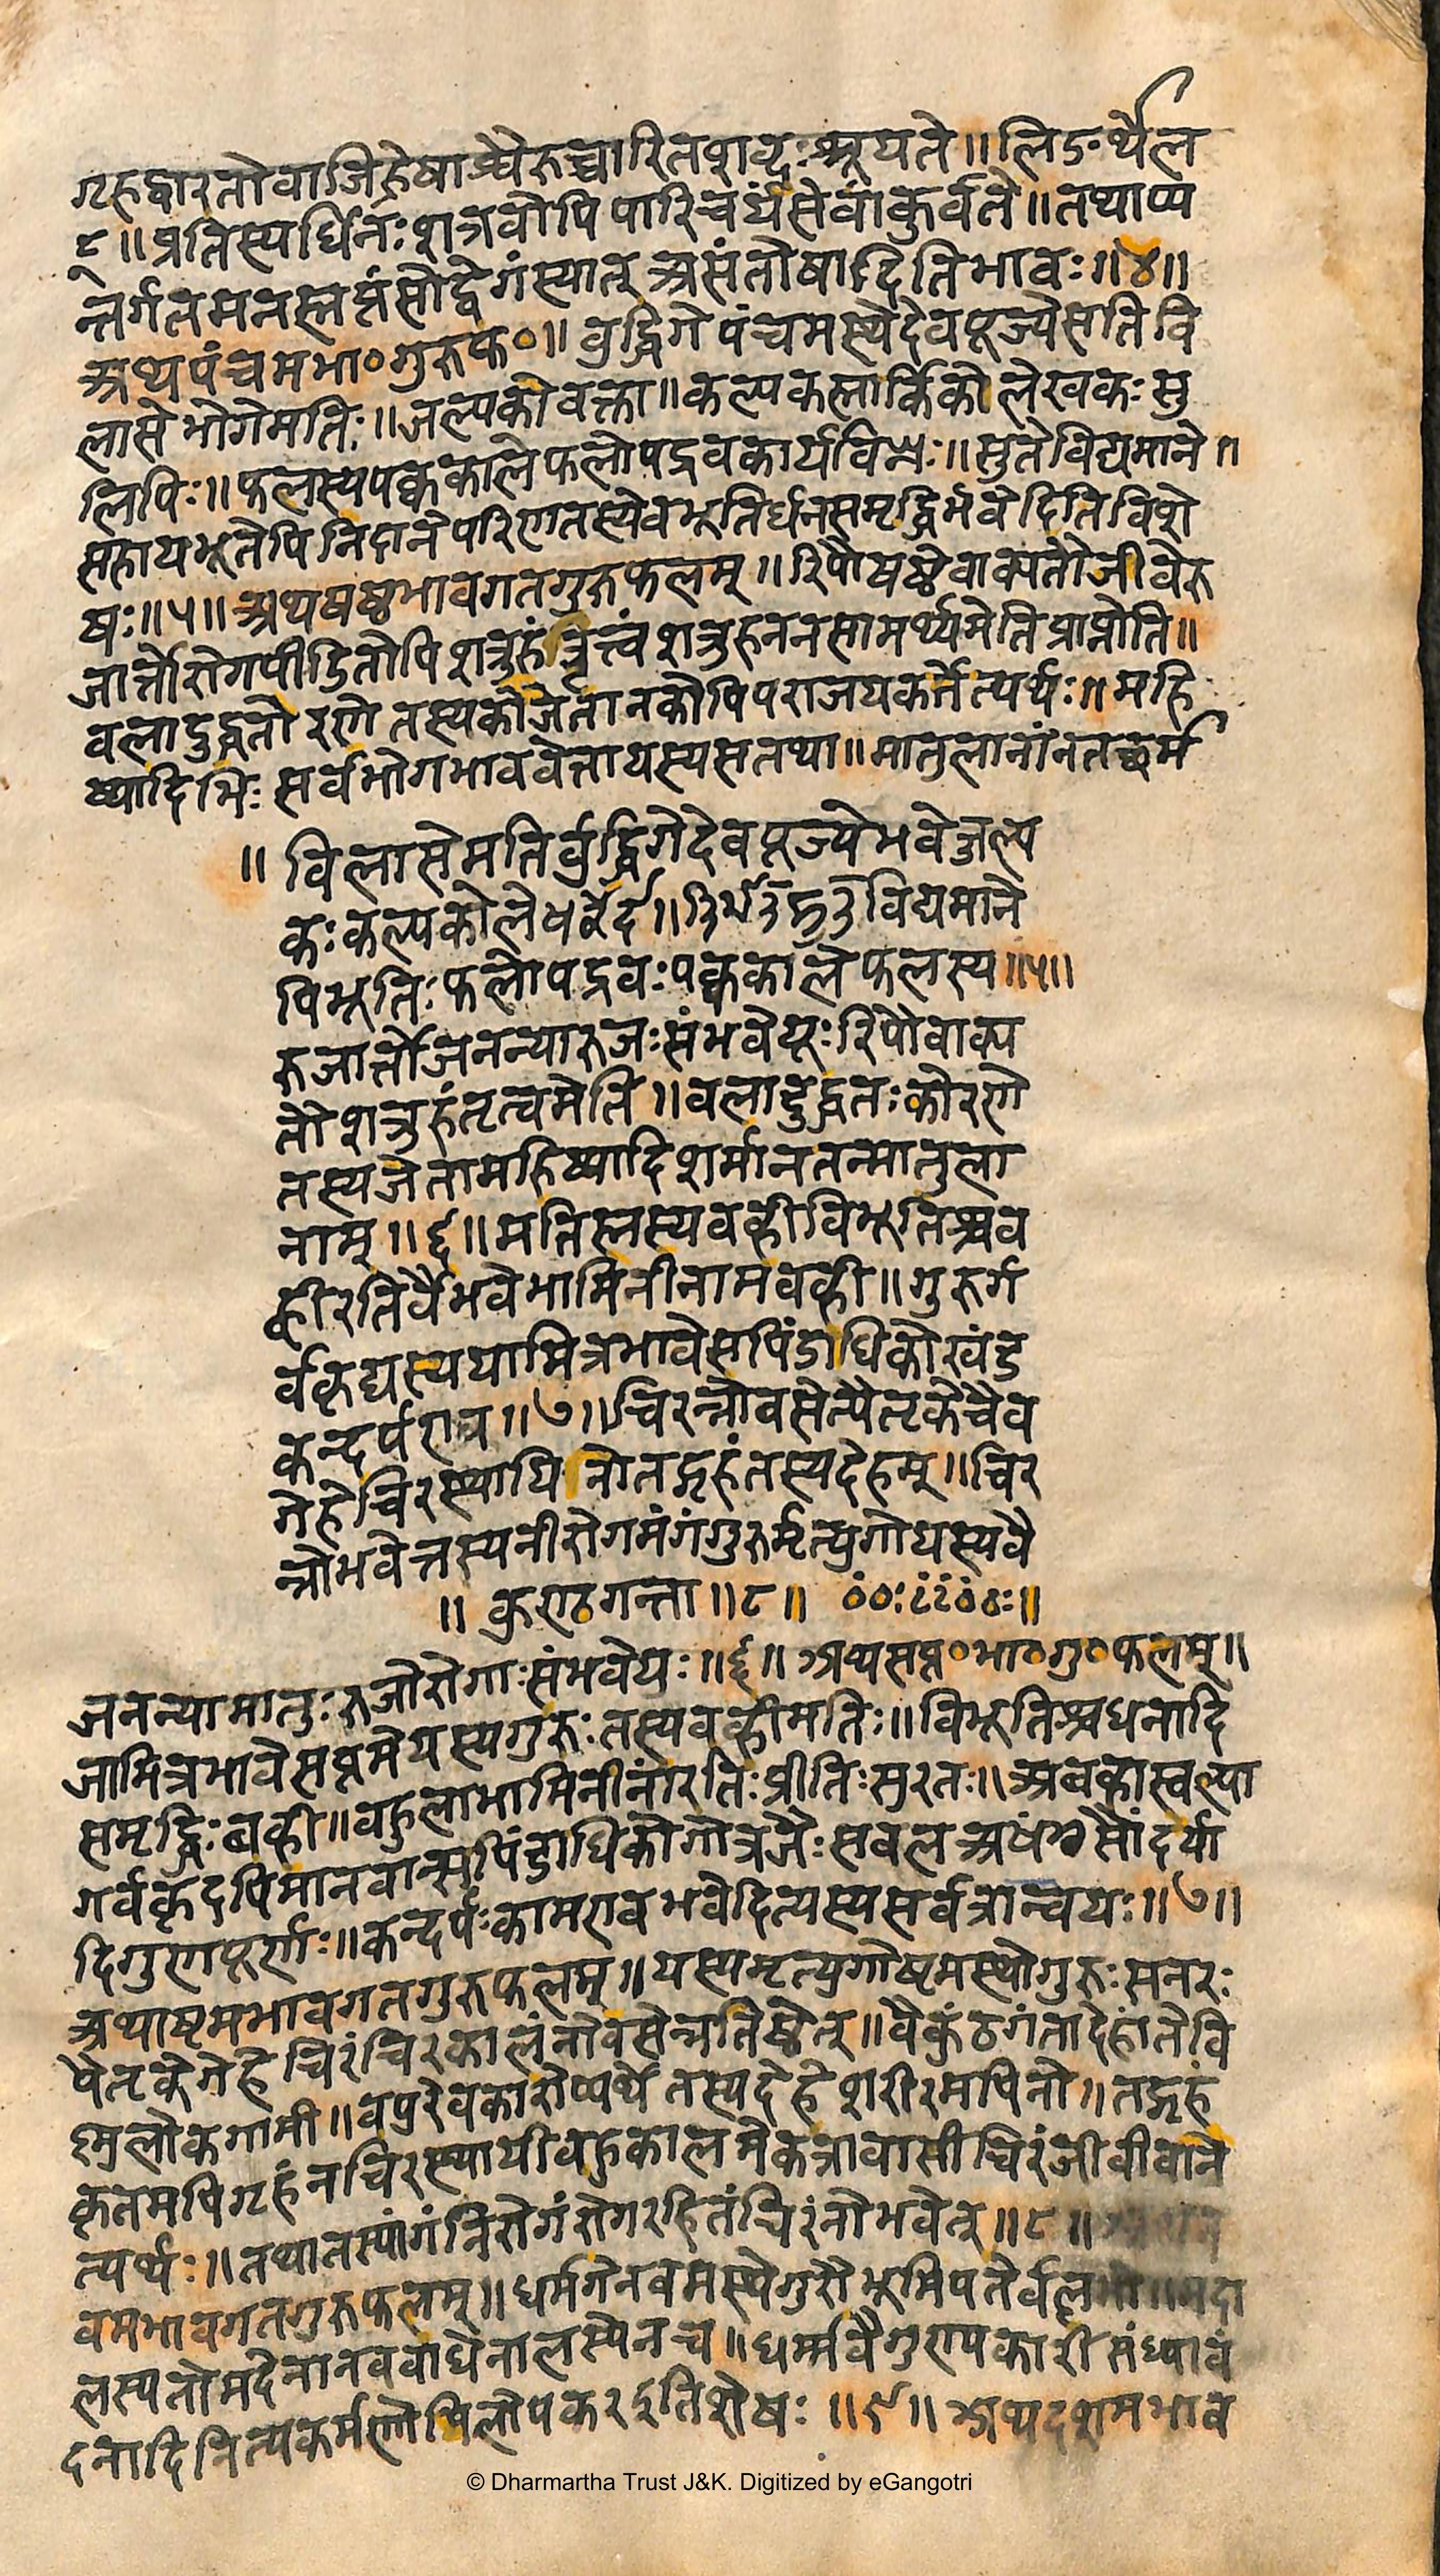 गृहद्वारतोवाजिह्रेषाश्वैरुच्चारितशब्दःश्रूयते॥लिङर्थेल
ट्॥प्रतिस्पर्धिनःशत्रवोपि पारिचर्यंसेवांकुर्वते॥तथाप्य
न्तर्गतमनस्तप्तंसोद्वेगंस्यात् असंतोषादितिभावः॥४॥
अथपंचमभा॰गुरुफ॰॥ बुद्धिगे पंचमस्थेदेवपूज्येसति वि
लासे भोगेमतिः॥जल्पकोवक्ता॥कल्पकस्तार्किको लेखकः सु
लिपिः॥फलस्यपक्वकाले फलोपद्रवकार्यविघ्नः॥सुतेविद्यमाने॥
सहायभूतेपि निदाने परिणतस्येवभूतिर्धनसमृद्धिर्भवेदितिविशे
षः॥५॥ अथषष्ठभावगतगुरुफलम्॥ रिपौषष्ठेवाक्पतौजीवेरु
जार्त्तोरोगपीडितोपि शत्रुहंतृत्वं शत्रुहननसामर्थ्यमेति प्राप्नोति॥
बलादुद्धतो रणे तस्यकोजेतानकोपिपराजयकर्तेत्यर्थः॥महि
ष्यादिभिः सर्वभोगभाववेत्तायस्यसतथा॥मातुलानांनतच्छर्म
॥ विलासेमतिर्बुद्धिगेदेवपूज्येभवेज्जल्प
कः कल्पकोलेखको विद्यमाने
पिभूतिः फलोपद्रवः पक्वकाले फलस्य॥५॥
रुजार्त्तोजनन्यारुजः संभवेयूः रिपौवाक्प
तौ शत्रुहंतृत्वमेति॥बलादुद्धतः कोरणे
तस्यजेतामहिष्यादिशर्मानतन्मातुला
नाम्॥६॥मतिस्तस्यबह्वीविभूतिश्चब
ह्वीरतिर्वैभवेभामिनीनामबह्वी॥गुरुर्ग
र्वकृद्यस्ययामित्रभावेसपिंडाधिकोखंड
कन्दर्पएव॥७॥चिरन्नोवसेत्पैतृकेचैव
गेहेचिरस्थायिनोतद्गृहंतस्यदेहम्॥चिर
न्नोभवेत्तस्यनीरोगमंगंगुरुर्मृत्युगोयस्यवै
॥ कुण्ठगन्ता॥८॥
जनन्यामातुः रुजोरोगाः संभवेयुः॥६॥ अथसप्त॰भा॰गु॰फलम्॥
जामित्रभावेसप्तमेयस्यगुरुः तस्यबह्वीमतिः॥विभूतिश्चधनादि
समृद्धिः बह्वी॥बहुलाभामिनीनांरतिः प्रीतिः सुरतः॥अबह्वीस्वल्पा
गर्वकृदभिमानवान्सपिंडाधिकोगोत्रजैः सबल अखंडसौंदर्या
दिगुणपूर्णः॥कन्दर्पः कामएवभवेदित्यस्यसर्वत्रान्वयः॥७॥
अथाष्टमभावगतगुरुफलम्॥यस्यमृत्युगोष्टमस्थोगुरुः सनरः
पैतृकेगेहे चिरंचिरकालंनोवसेन्नतिष्ठेत्॥वैकुंठगंतादेहांतेवि
ष्णुलोकगामी॥ तस्यदेहं शरीरमपिनो॥तद्गृहं
कृतमपिगृहंनचिरस्थायीबहुकालमेकत्रावासीचिरंजीवीवाने
त्यर्थः॥तथातस्यांगंनिरोगंरोगरहितंचिरंनोभवेत्॥८॥
वमभावगतगुरुफलम्॥धर्मगेनवमस्थेगुरौभूमिपतेर्बल
लस्यतोमदेनानवबोधेनालस्येनच॥ संध्यावं
दनादिनित्यकर्मणोपिलोपकरइतिशेषः॥९॥ अथदशमभाव
© Dharmartha Trust J&K. Digitized by eGangotri